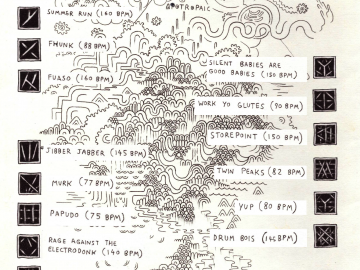 GEOTROPAIC
SUMMER RUN (160 BPM)
FWUNK (88 BPM)
FUASO (160 BPM)
JIBBER JABBER (145 BPM)
MURK (77 BPM)
PAPUDO (75 BPM)
RAGE AGAINST THE
ELECTRODONK (140 BPM)
SILENT BABIES ARE
GOOD BABIES (150 BPM)
WORK YO GLUTES (90 BPM)
STOREPOINT (150 BPM)
TWIN PEAKS (82 BPM)
YUP (80 BPM)
DRUM BOIS (146 BPM)